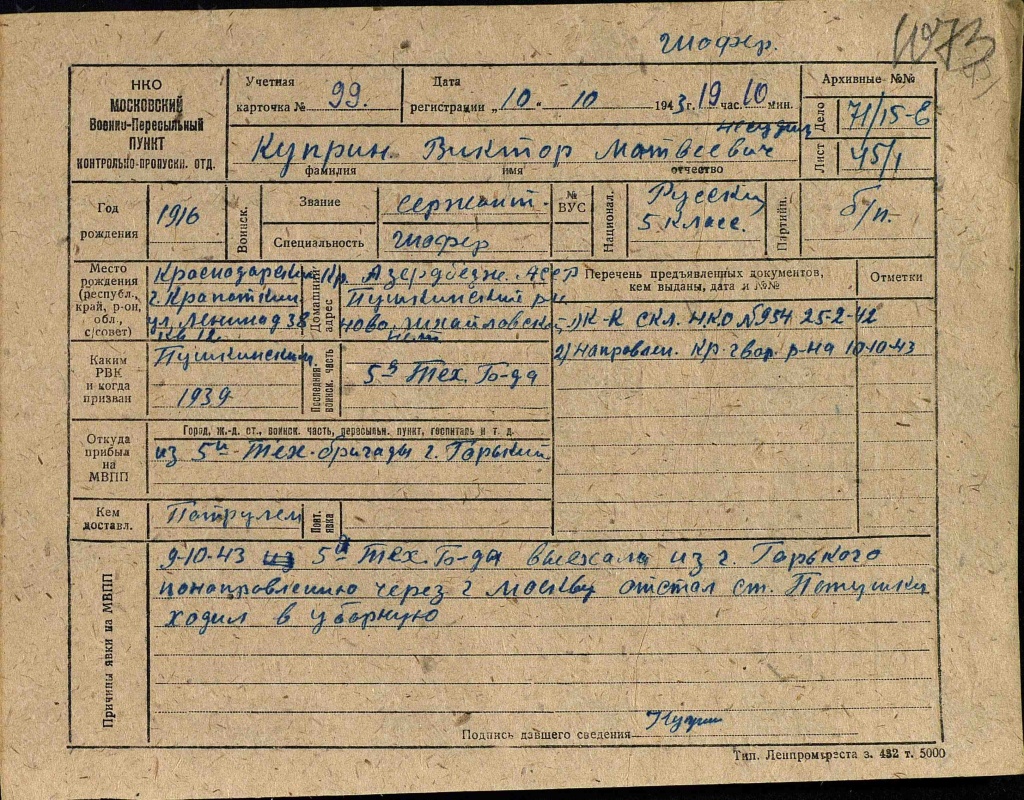 шофер.
1073
НКО
МОСКОВСКИЙ
Военно-Пересыльный
ПУНКТ
КОНТРОЛЬНО-ПРОПУСКН. ОТД.
Учетная
карточка № 99.
Дата
регистрации „10“ 10 1943 г. 19 час. 10 мин.
Архивные №№
Дело 71/15-в
Лист 45/1
Куприн Виктор Матвеевич
фамилия имя отчество
Год
рождения
1916
Воинск.
Звание сержант.
Специальность шофер
№
ВУС
Национал.
Русский
5 класс.
Партийн.
б/п.
Место
рождения
(республ.,
край, р-он,
обл.,
с/совет)
Краснодарский Кр.
г. Кропоткин
ул. Ленина д 38
кв 12
Домашний
адрес
Азербедж. АССР
Пушкинский р-н
ново. михайловск
нет
Перечень предъявленных документов,
кем выданы, дата и №№
Отметки
1) К-к СКЛ. НКО №954 25-2-42
2) Направлен. Кр. гвор. р-на 10-10-43
Каким
РВК
и когда
призван
Пушкинским
1939
Последняя
воинск. часть
5я Тех. Б-да
Откуда
прибыл
на
МВПП
Город, ж.-д. ст., воинск. часть, пересыльн. пункт, госпиталь и т. д.
из 5й Тех. бригады г. Горький
Кем
доставл.
Патрулем
Повт.
явка
Причины явки на МВПП
9-10-43 из 5я Тех. Б-да выехала из г. Горького
понаправлению через г Москву отстал ст. Петушки
ходил в уборную
Подпись давшего сведения Куприн
Тип. Ленпромтреста з. 432 т. 5000